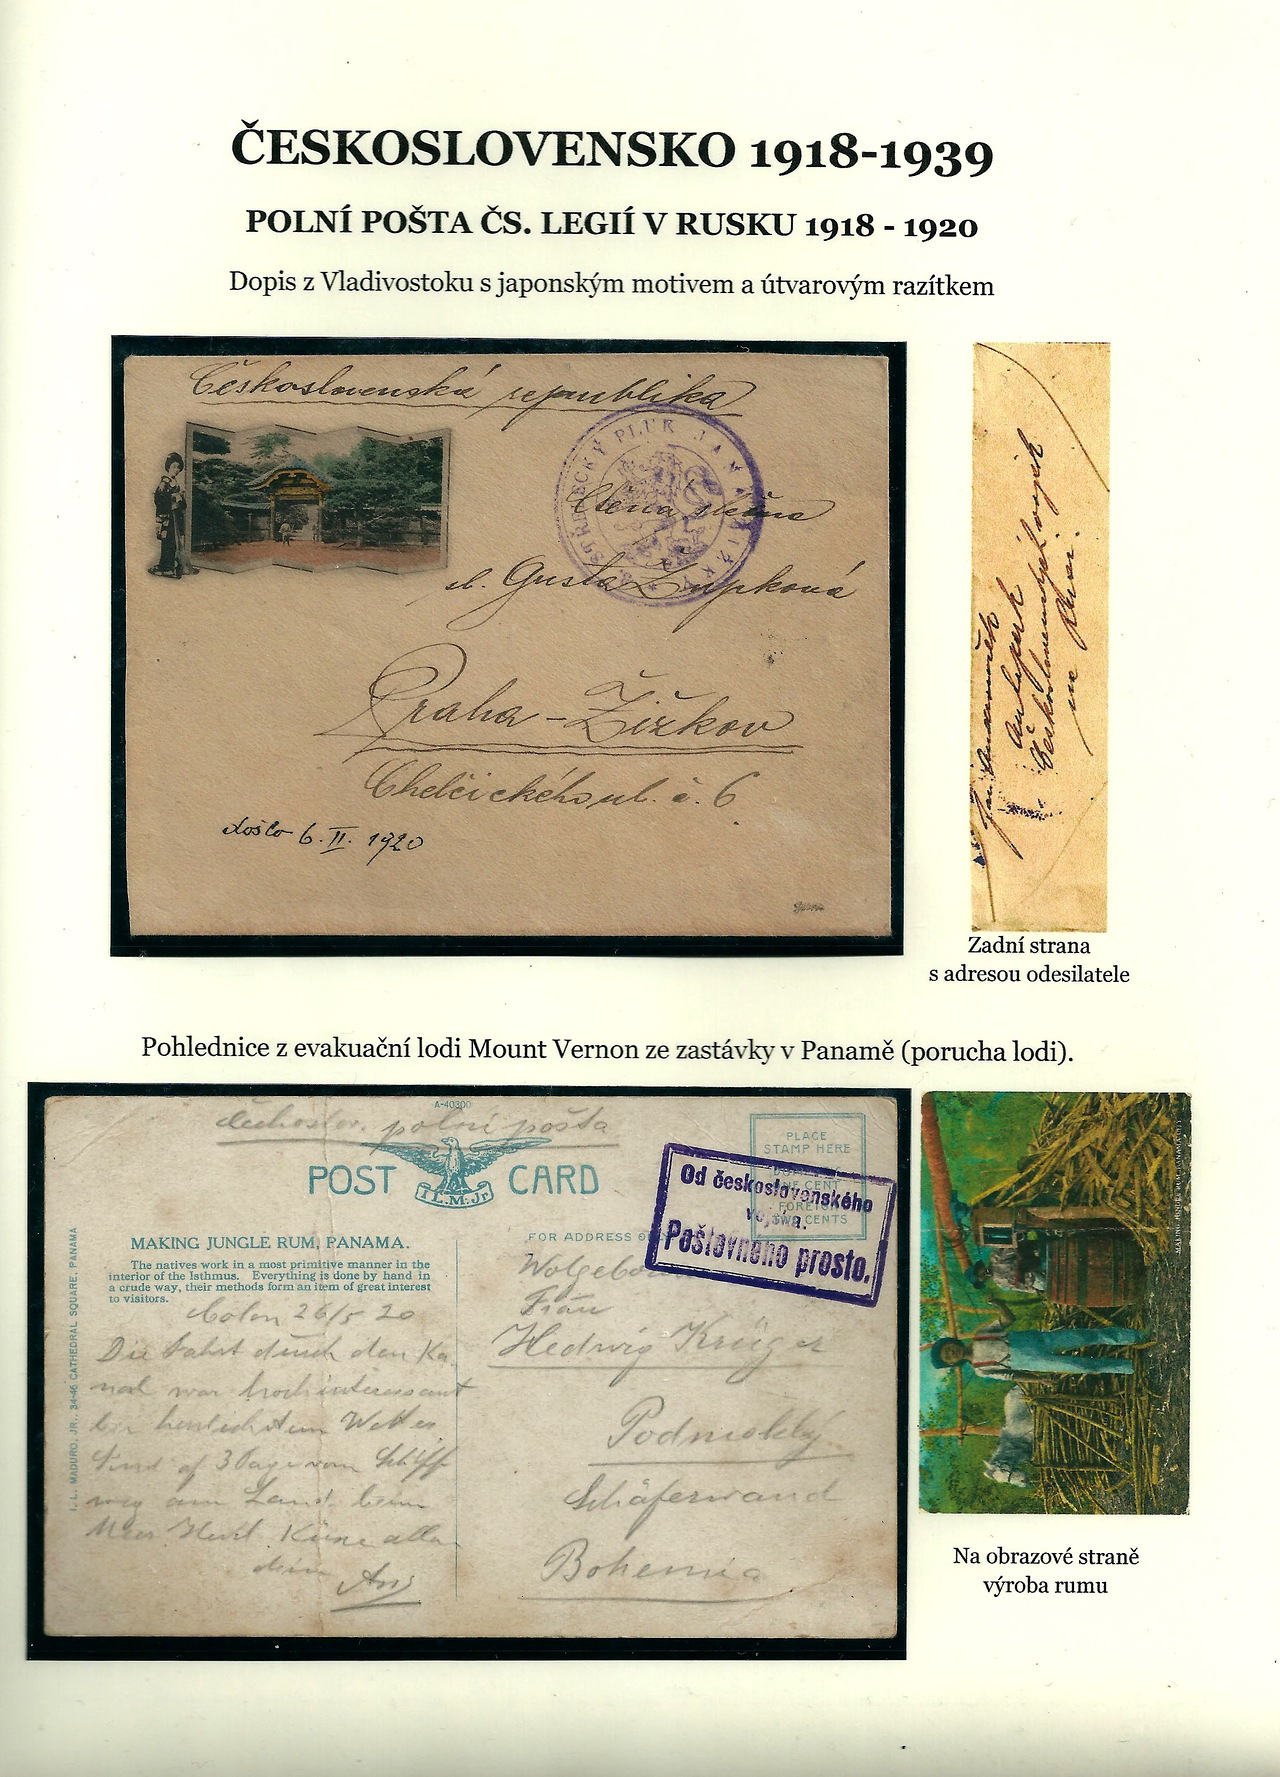 ČESKOSLOVENSKO 1918-1939
POLNÍ POŠTA ČS. LEGIÍ V RUSKU 1918 - 1920
Dopis z Vladivostoku s japonským motivem a útvarovým razítkem
Československá republika
STŘELECKÝ PLUK JANA ŽIŽKY
Ctěná slečna
sl. Gusta Lupková
Praha - Žižkov
Chelčického ul. č. 6
došlo 6. II. 1920
Československých vojsk
na Rusi.
Zadní strana
s adresou odesilatele
Pohlednice z evakuační lodi Mount Vernon ze zastávky v Panamě (porucha lodi).
A-40300
polní pošta
POST CARD
I.L.M.Jr
PLACE
STAMP HERE
ONE CENT
FOREIGN
TWO CENTS
Od československého
vojína.
Poštovného prosto.
MAKING JUNGLE RUM, PANAMA.
The natives work in a most primitive manner in the
interior of the Isthmus. Everything is done by hand in
a crude way, their methods form an item of great interest
to visitors.
FOR ADDRESS
I. L. MADURO, JR., 34-46 CATHEDRAL SQUARE, PANAMA
Colon 26/5 20
Die Fahrt durch den Ka-
nal war hochinteressant
Wetter
Sind 3 Tage vom Schiff
weg am Land beim
Meer
Frau
Hedwig Krüger
Podmokly
Schäferwand
Bohemia
Na obrazové straně
výroba rumu